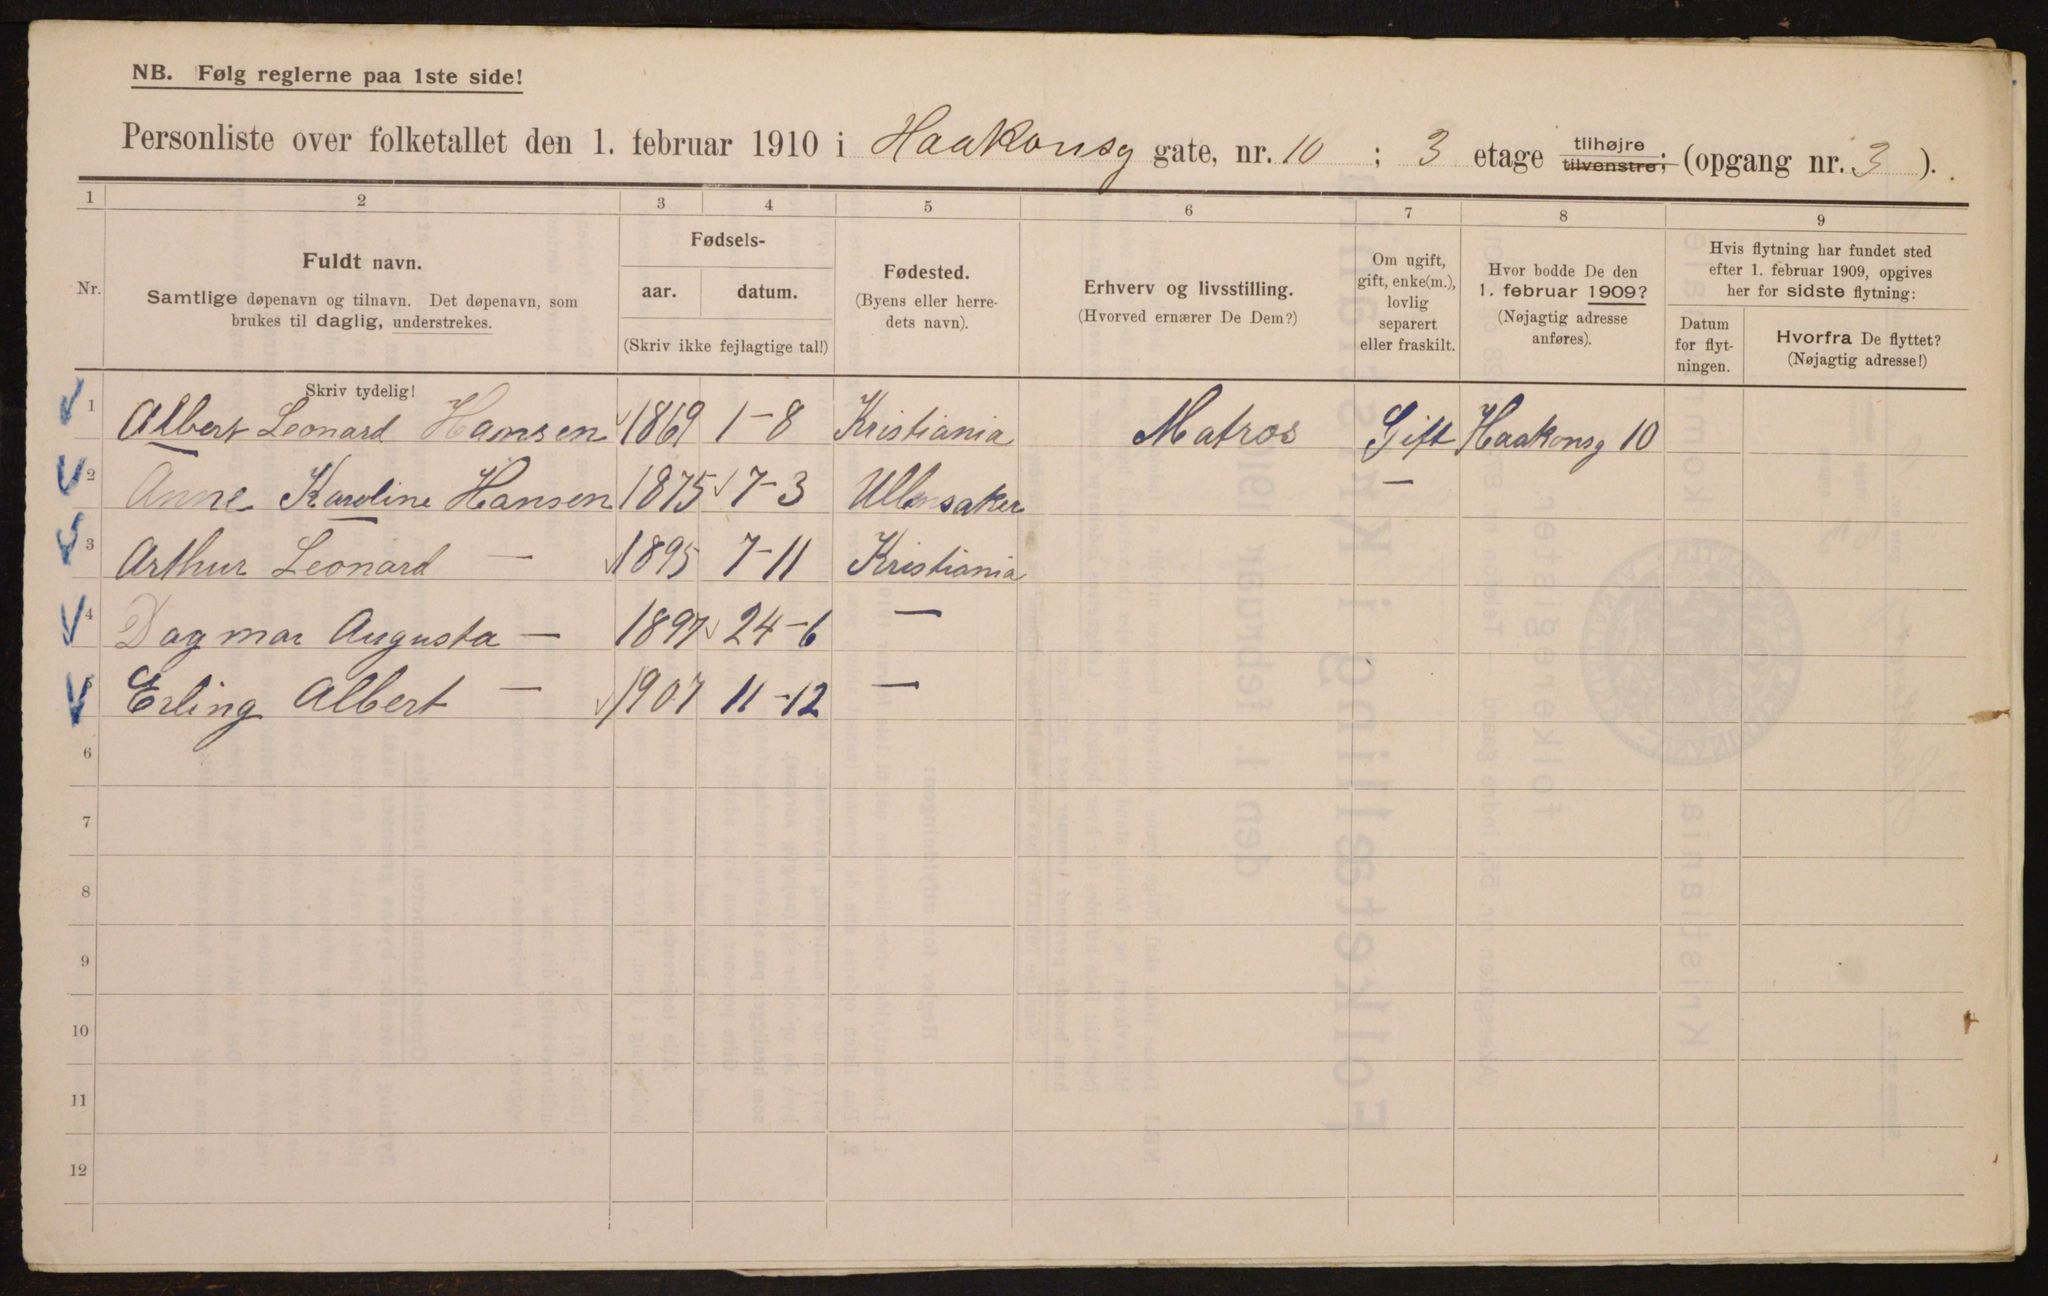 NB. Følg reglerne paa 1ste side!
Personliste over folketallet den 1. februar 1910 i Haakonsg gate, nr. 10 ; 3 etage tilhøjre tilvenstre; (opgang nr. 3 ).
1 2 3 4 5 6 7 8 9
Nr.
Fuldt navn.
Samtlige døpenavn og tilnavn. Det døpenavn, som
brukes til daglig, understrekes.
Fødsels-
aar. datum.
(Skriv ikke fejlagtige tal!)
Fødested.
(Byens eller herre-
dets navn).
Erhverv og livsstilling.
(Hvorved ernærer De Dem?)
Om ugift,
gift, enke(m.),
lovlig
separert
eller fraskilt.
Hvor bodde De den
1. februar 1909?
(Nøjagtig adresse
anføres).
Hvis flytning har fundet sted
efter 1. februar 1909, opgives
her for sidste flytning:
Datum
for flyt-
ningen.
Hvorfra De flyttet?
(Nøjagtig adresse!)
Skriv tydelig!
1 Albert Leonard Hansen 1869 1-8 Kristiania Matros Gift Haakonsg 10
2 Anne Karoline Hansen 1875 7-3 Ullensaker —
3 Arthur Leonard — 1895 7-11 Kristiania
4 Dagmar Augusta — 1897 24-6 —
5 Erling Albert — 1907 11-12 —
6
7
8
9
10
11
12